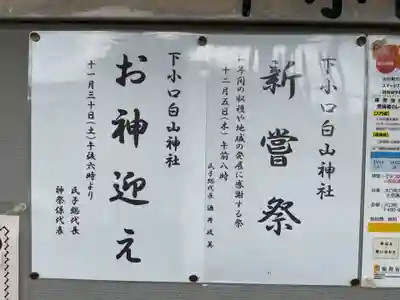 下小口白山神社
新嘗祭
一年間の収穫や地域の発展に感謝する祭
十二月五日(木)午前八時
氏子総代長 酒井政美
下小口白山神社
お神迎え
十一月三十日(土)午後六時より
氏子総代長
神祭係代表